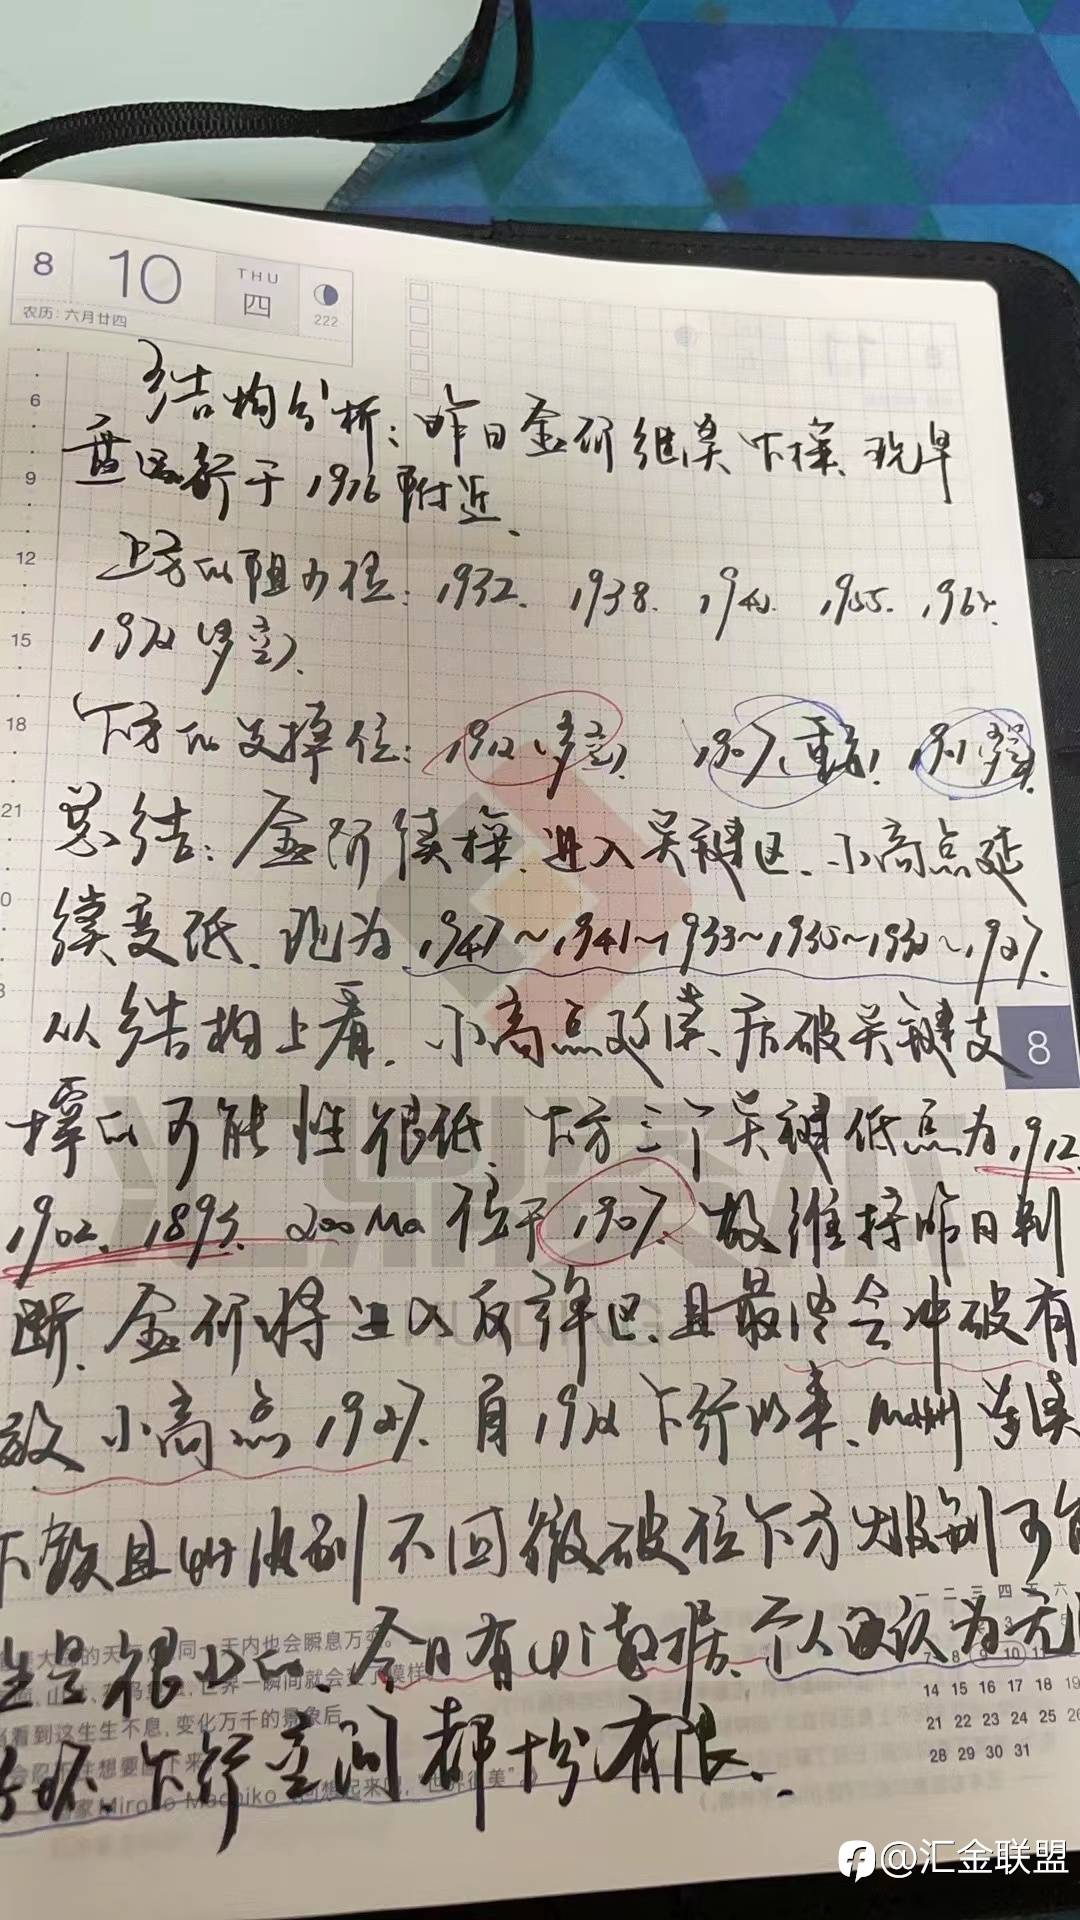 8 10 THU 四 222
农历: 六月廿四
结构分析: 昨日金价继续下探, 现早
盘运行于1916附近.
上方的阻力位: 1932. 1938. 1955.
1972(多空).
下方的支撑位: 1912(多空) 1907(重点) 1901
总结: 金价续探, 进入关键区, 小高点延
续变低, 现为1947~1941~1938~1935~1932~1927.
从结构上看, 小高点延续, 后破关键支
撑的可能性很低, 下方三个关键低点为1912
1902. 1893. 200Ma位于1907. 故维持昨日判
断, 金价将进入反弹区, 且最终会冲破有
效小高点1927. 自1972下行以来,
下数且4H级别不回微破位下方大级别可能
性是很小的. 今日有cpi数据, 个人认为无论
好坏, 下行空间都十分有限.
6
9
12
15
18
21
8
一 二 三 四 五 六
7 8 9 10 11
14 15 16 17 18 19
21 22 23 24 25 26
28 29 30 31
天内也会瞬息万变。
世界一瞬间就会变了模样
看到这生生不息, 变化万千的景象后
HUIDING
@汇金联盟